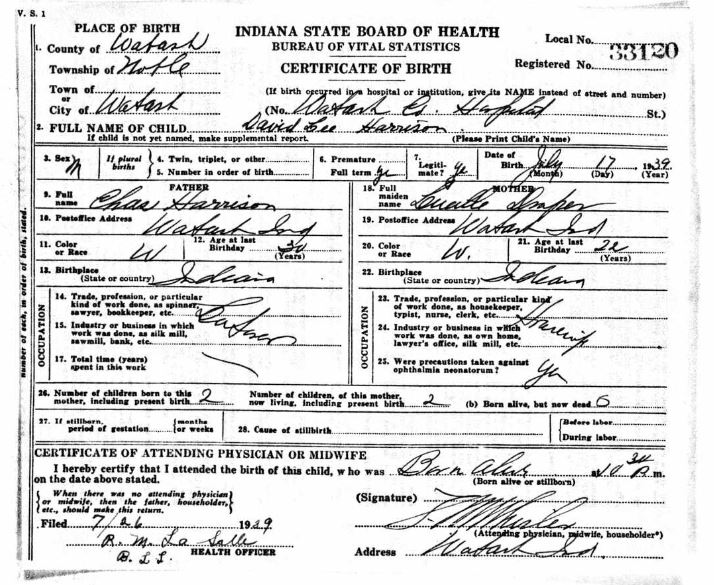 V. S. 1
PLACE OF BIRTH
INDIANA STATE BOARD OF HEALTH
BUREAU OF VITAL STATISTICS
CERTIFICATE OF BIRTH
Local No.
Registered No. 33120
1. County of Wabash
Township of Noble
Town of
or
City of Wabash
(If birth occurred in a hospital or institution, give its NAME instead of street and number)
(No. Wabash Co. Hospital St.)
2. FULL NAME OF CHILD David Lee Harrison
If child is not yet named, make supplemental report. (Please Print Child's Name)
3. Sex M
If plural births
4. Twin, triplet, or other
5. Number in order of birth
6. Premature
Full term ye
7. Legitimate? ye
Date of Birth July 17 1939
(Month) (Day) (Year)
FATHER
9. Full name Chas Harrison
10. Postoffice Address Wabash Ind
11. Color or Race W
12. Age at last Birthday 30 (Years)
13. Birthplace (State or country) Indiana
MOTHER
18. Full maiden name Lucille Draper
19. Postoffice Address Wabash Ind
20. Color or Race W.
21. Age at last Birthday 22 (Years)
22. Birthplace (State or country) Indiana
OCCUPATION
14. Trade, profession, or particular kind of work done, as spinner, sawyer, bookkeeper, etc.
15. Industry or business in which work was done, as silk mill, sawmill, bank, etc.
17. Total time (years) spent in this work
OCCUPATION
23. Trade, profession, or particular kind of work done, as housekeeper, typist, nurse, clerk, etc.
24. Industry or business in which work was done, as own home, lawyer's office, silk mill, etc.
25. Were precautions taken against ophthalmia neonatorum? Ye
26. Number of children born to this mother, including present birth 2
Number of children, of this mother, now living, including present birth 2
(b) Born alive, but now dead 0
27. If stillborn, period of gestation { months or weeks
28. Cause of stillbirth
{ Before labor
During labor
CERTIFICATE OF ATTENDING PHYSICIAN OR MIDWIFE
I hereby certify that I attended the birth of this child, who was Born alive at 10 34 P m.
on the date above stated. (Born alive or stillborn)
{ When there was no attending physician or midwife, then the father, householder, etc., should make this return. }
(Signature)
(Attending physician, midwife, householder*)
Filed 7/26 1939
R. M. La Salle
HEALTH OFFICER
Address Wabash Ind.
number of each, in order of birth, stated.